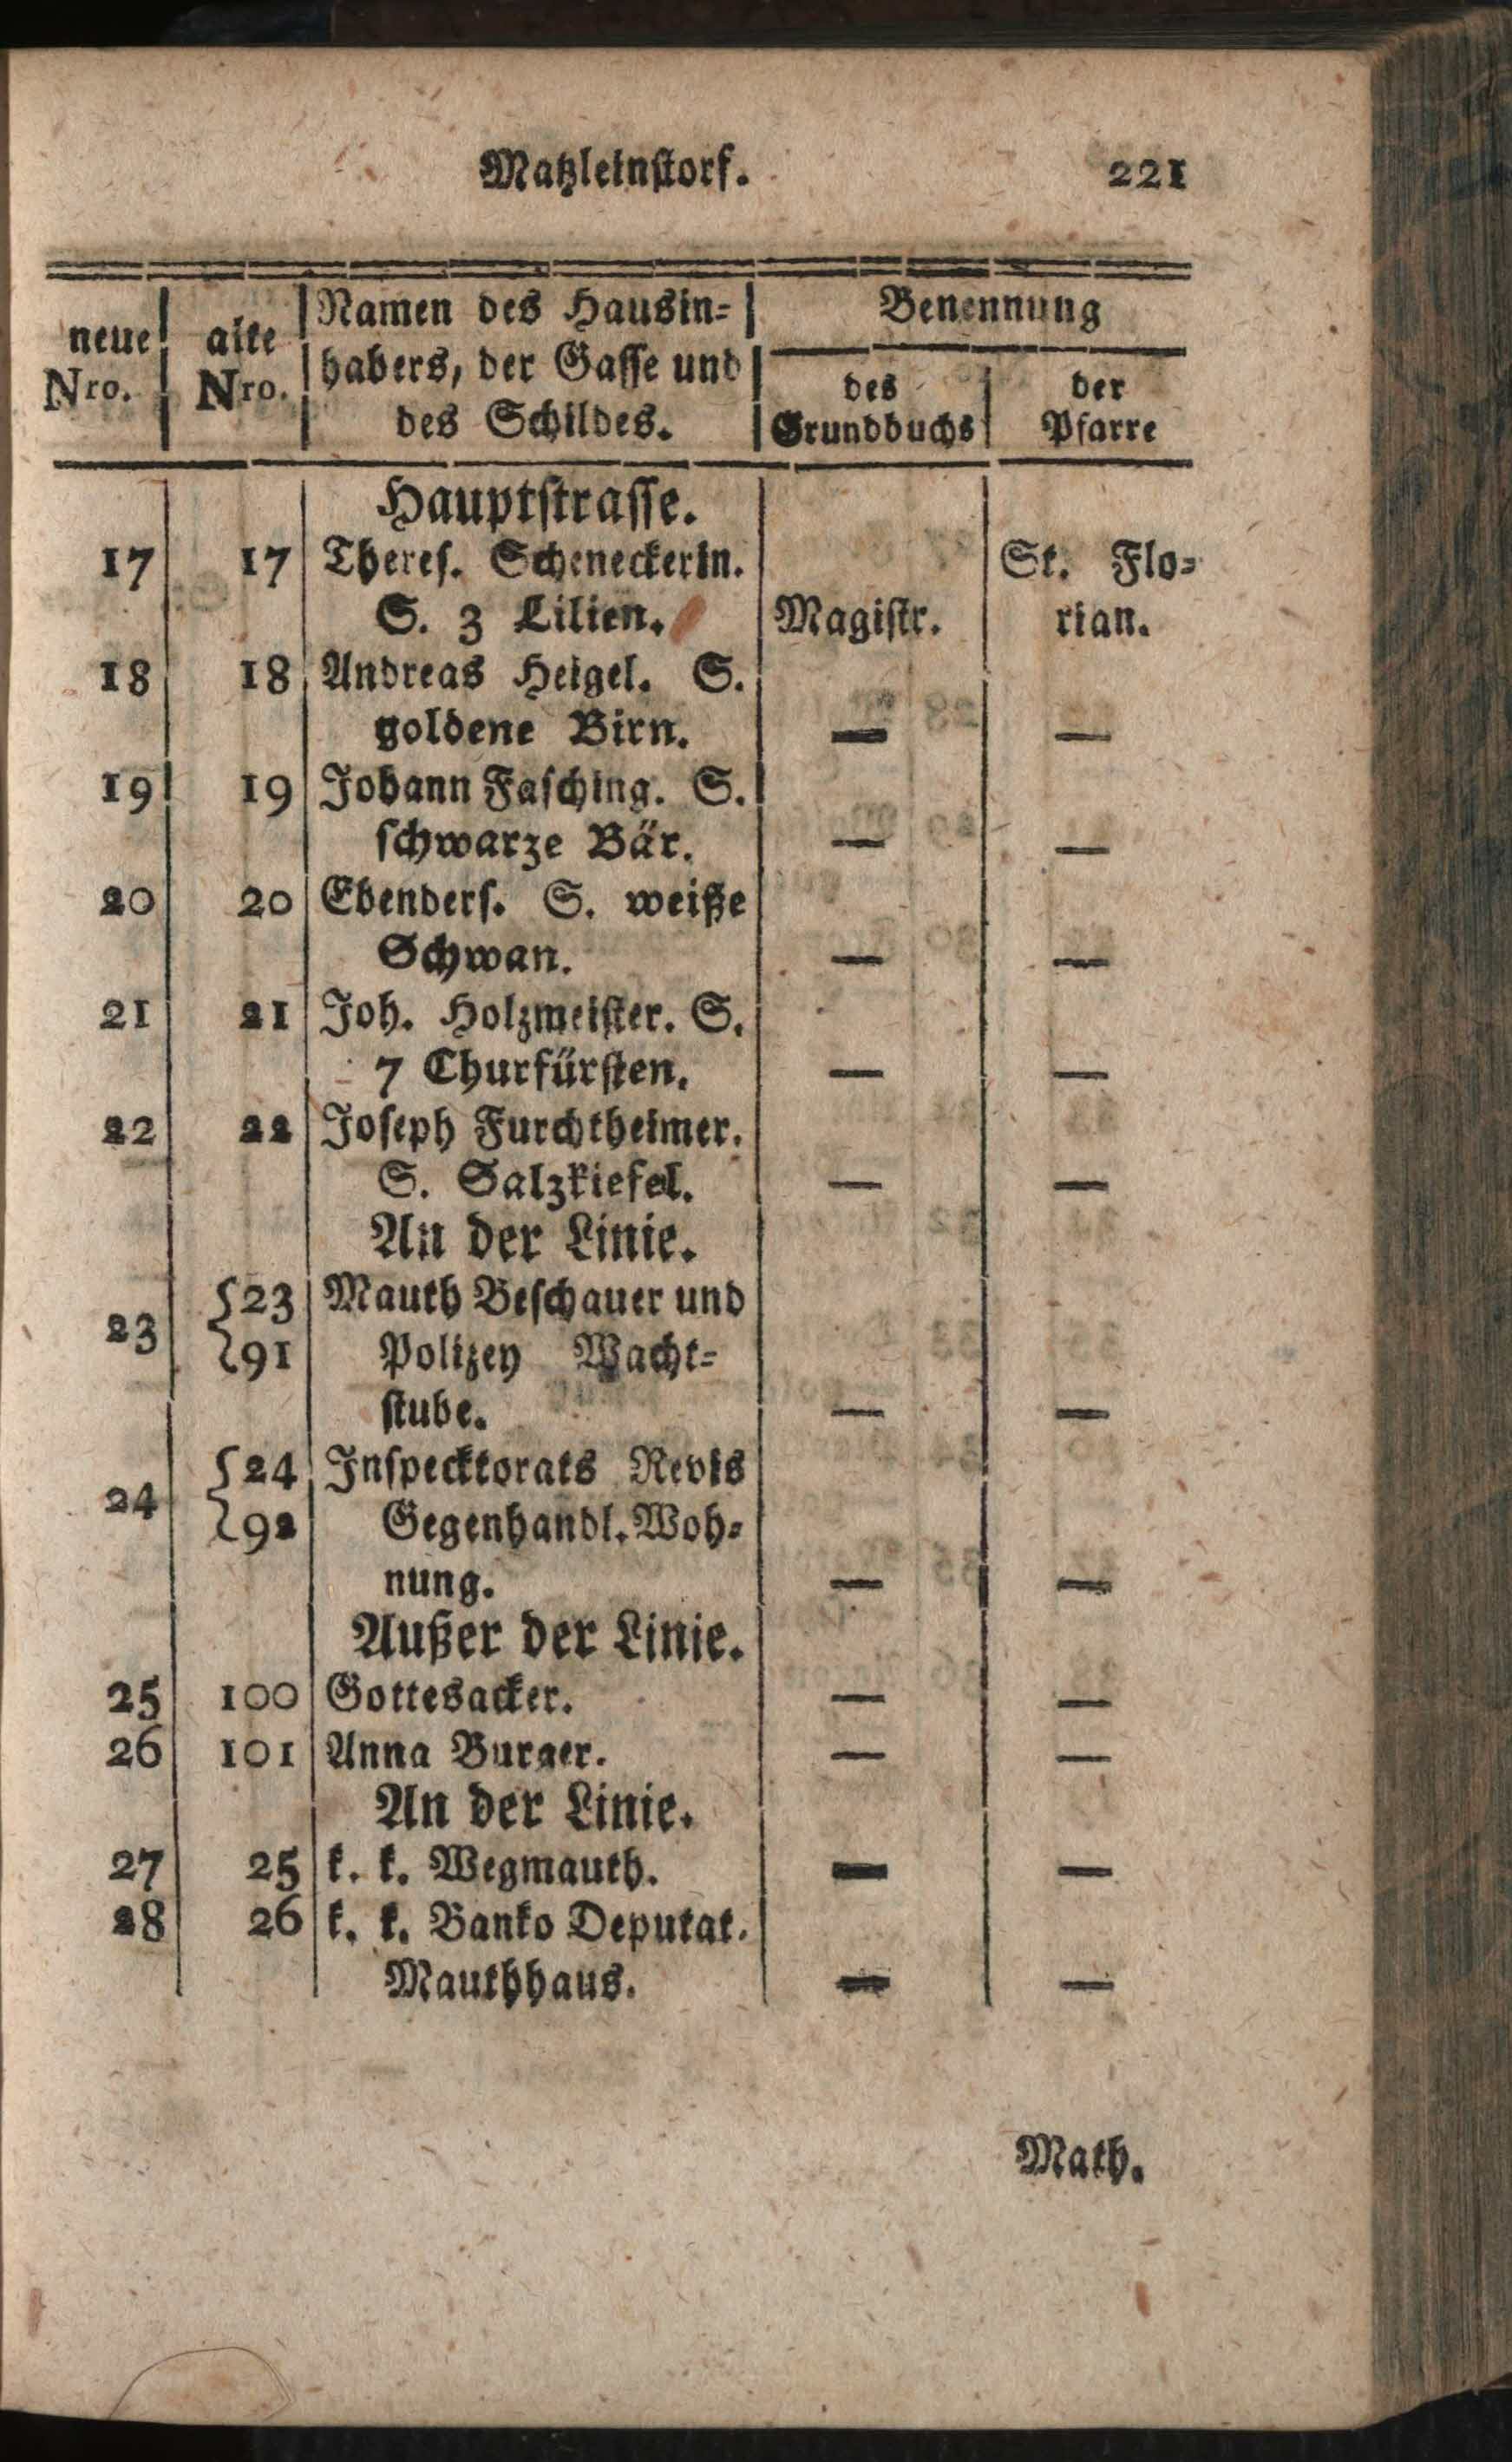 Matzleinstorf. 221
neue Nro. alte Nro. Namen des Hausin- Benennung
habers, der Gasse und des der
des Schildes. Grundbuchs Pfarre
Hauptstrasse.
17 17 Theres. Scheneckerin. St. Flo-
S. 3 Lilien. Magistr. rian.
18 18 Andreas Heigel. S.
goldene Birn. — —
19 19 Johann Fasching. S.
schwarze Bär. — —
20 20 Ebenders. S. weiße
Schwan. — —
21 21 Joh. Holzmeister. S.
7 Churfürsten. — —
22 22 Joseph Furchtheimer.
S. Salzkiefel. — —
An der Linie.
23 {23 Mauth Beschauer und
{91 Polizey Wacht-
stube. — —
24 {24 Inspecktorats Revis
{92 Gegenhandl. Woh-
nung. — —
Außer der Linie.
25 100 Gottesacker. — —
26 101 Anna Burger. — —
An der Linie.
27 25 k. k. Wegmauth. — —
28 26 k. k. Banko Deputat.
Mauthhaus. — —
Math.